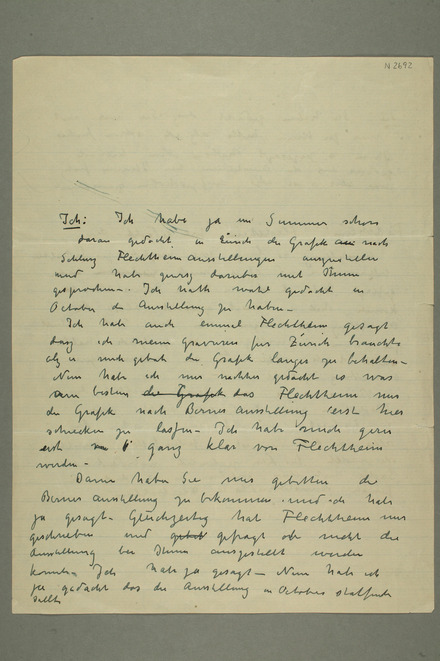 N 2692
Ich: Ich habe ja im Sommer schon
daran gedacht, in Zürich die Grafik nach
Flechtheim ausstellungen auszustellen
und habe darüber mit Ihnen
gesprochen. Ich hatte wohl gedacht in
October die Ausstellung zu haben.
Ich hab auch einmal Flechtheim gesagt
dass ich meine Gravuren für Zürich brauchte
als er mich gebeten die Grafik länger zu behalten.
Nun hab ich mir nachher gedacht es war
am besten die Grafik das Flechtheim mir
die Grafik nach Berner Ausstellung erst hier
schicken zu lassen. Ich habe mich gern
erst ganz klar von Flechtheim
werden.
Dann haben Sie mich gebeten die
Berner ausstellung zu bekommen und ich hab
ja gesagt. Gleichzeitig hat Flechtheim mir
geschrieben und gefragt ob nicht die
Ausstellung bei Ihnen ausgestellt werden
konnte. Ich hab ja gesagt. Nun hab ich
ja gedacht das die Ausstellung in October stattfinden
sollte